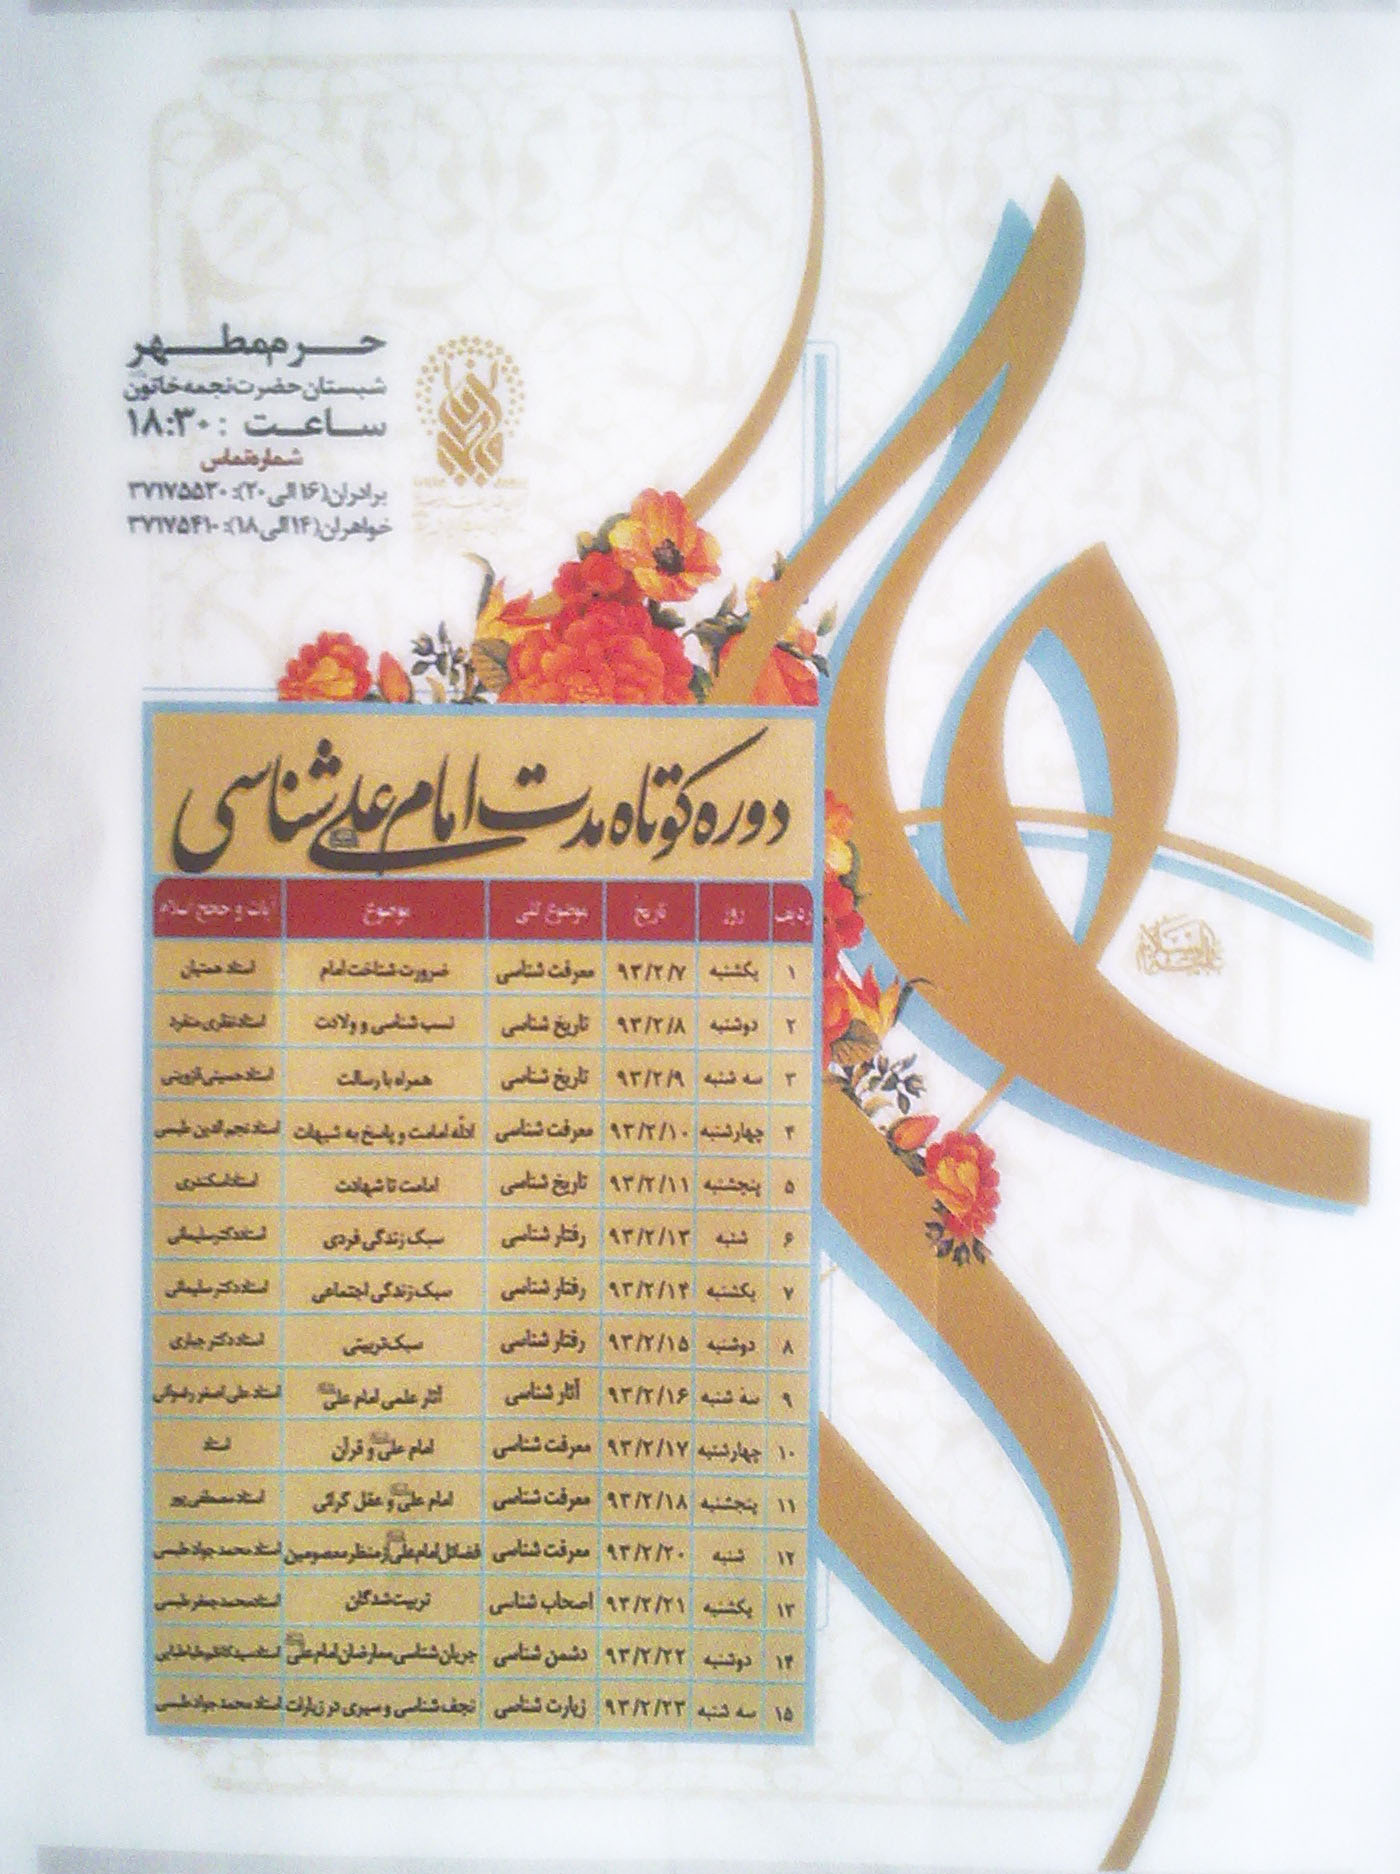 علی
علیه السلام
حرم مطهر
شبستان حضرت نجمه خاتون
ساعت : ۱۸:۳۰
شماره تماس
برادران(۱۶ الی ۲۰): ۳۷۱۷۵۵۳۰
خواهران(۱۴ الی ۱۸): ۳۷۱۷۵۴۱۰
دوره کوتاه مدت امام علی شناسی
ردیف روز تاریخ موضوع کلی موضوع آیات و حجج اسلام
۱ یکشنبه ۹۳/۲/۷ معرفت شناسی ضرورت شناخت امام استاد همتیان
۲ دوشنبه ۹۳/۲/۸ تاریخ شناسی نسب شناسی و ولادت استاد نظری منفرد
۳ سه شنبه ۹۳/۲/۹ تاریخ شناسی همراه با رسالت استاد حسینی قزوینی
۴ چهارشنبه ۹۳/۲/۱۰ معرفت شناسی ادله امامت و پاسخ به شبهات استاد نجم الدین طبسی
۵ پنجشنبه ۹۳/۲/۱۱ تاریخ شناسی امامت تا شهادت استاد اسکندری
۶ شنبه ۹۳/۲/۱۳ رفتار شناسی سبک زندگی فردی استاد دکتر سلیمانی
۷ یکشنبه ۹۳/۲/۱۴ رفتار شناسی سبک زندگی اجتماعی استاد دکتر سلیمانی
۸ دوشنبه ۹۳/۲/۱۵ رفتار شناسی سبک تربیتی استاد دکتر جباری
۹ سه شنبه ۹۳/۲/۱۶ آثار شناسی آثار علمی امام علی استاد علی اصغر رضوانی
۱۰ چهارشنبه ۹۳/۲/۱۷ معرفت شناسی امام علی و قرآن استاد
۱۱ پنجشنبه ۹۳/۲/۱۸ معرفت شناسی امام علی و عقل گرائی استاد مصطفی پور
۱۲ شنبه ۹۳/۲/۲۰ معرفت شناسی فضائل امام علی از منظر معصومین استاد محمد جواد طبسی
۱۳ یکشنبه ۹۳/۲/۲۱ اصحاب شناسی تربیت شدگان استاد محمد جعفر طبسی
۱۴ دوشنبه ۹۳/۲/۲۲ دشمن شناسی جریان شناسی معارضان امام علی استاد سید کاظم طباطبایی
۱۵ سه شنبه ۹۳/۲/۲۳ زیارت شناسی نجف شناسی و سیری در زیارات استاد محمد جواد طبسی